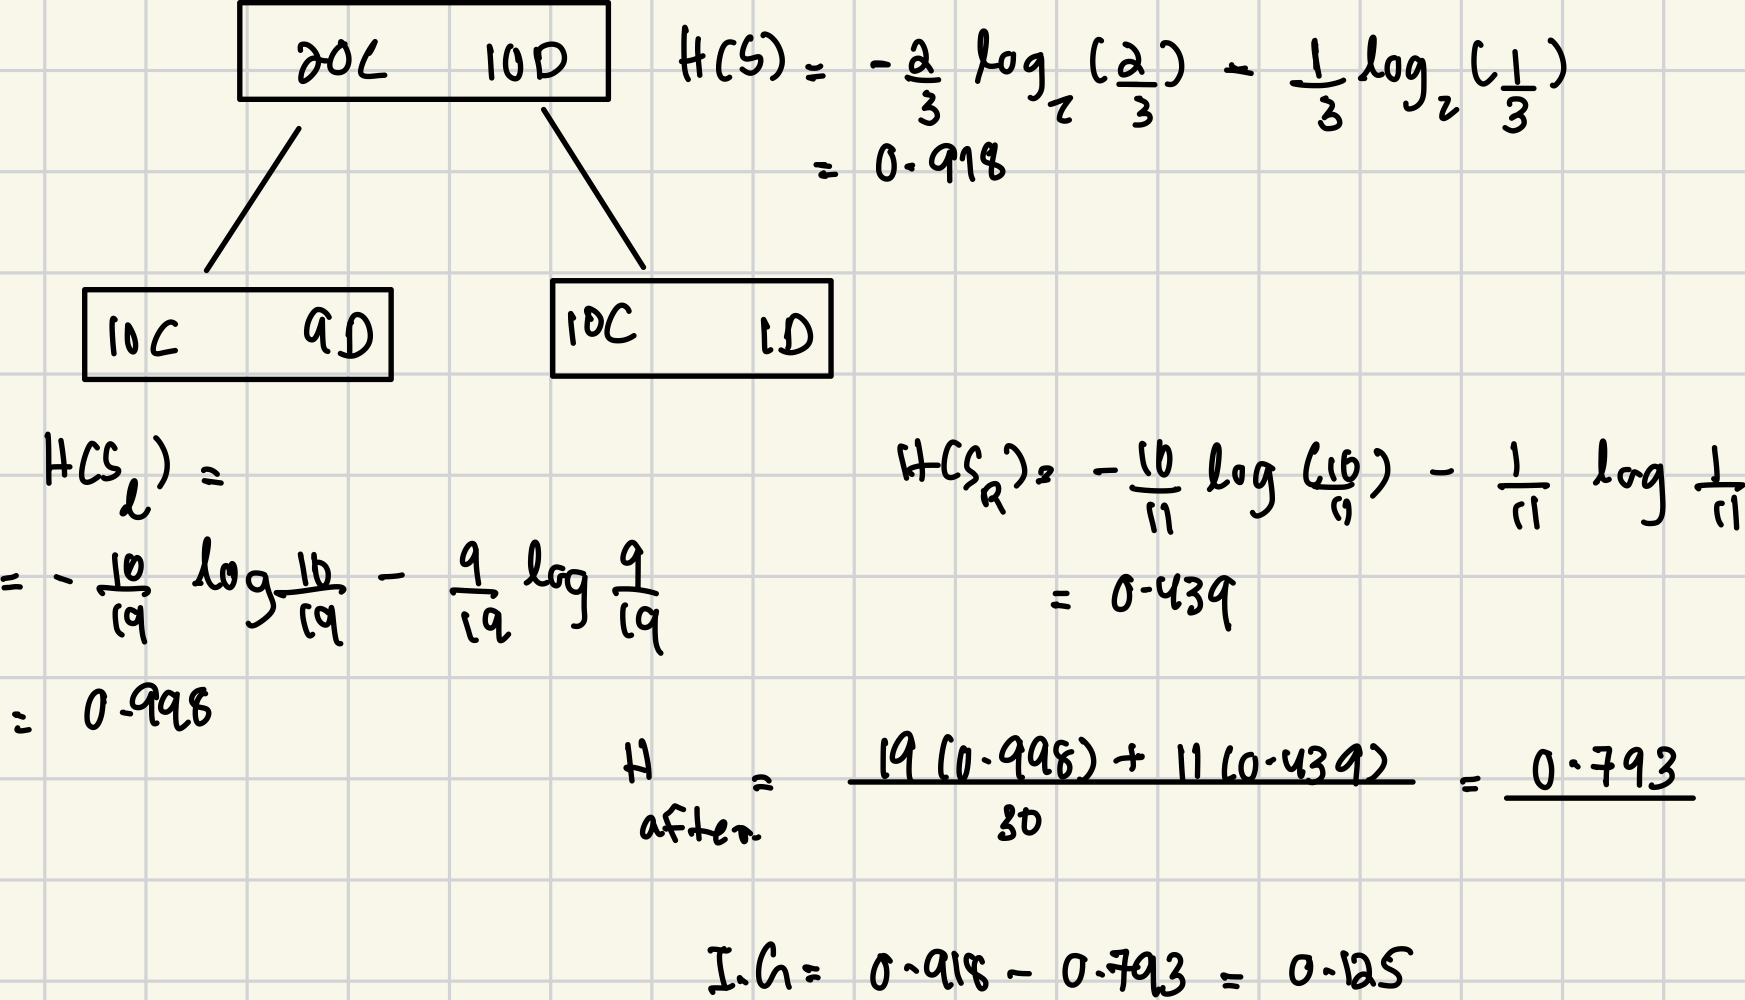 20C 10D
H(S) = - 2/3 log₂ (2/3) - 1/3 log₂ (1/3)
= 0.918
10C 9D
10C 1D
H(S_L) =
= - 10/19 log 10/19 - 9/19 log 9/19
= 0.998
H(S_R) = - 10/11 log (10/11) - 1/11 log 1/11
= 0.439
H after = 19 (0.998) + 11 (0.439) / 30 = 0.793
I.G = 0.918 - 0.793 = 0.125